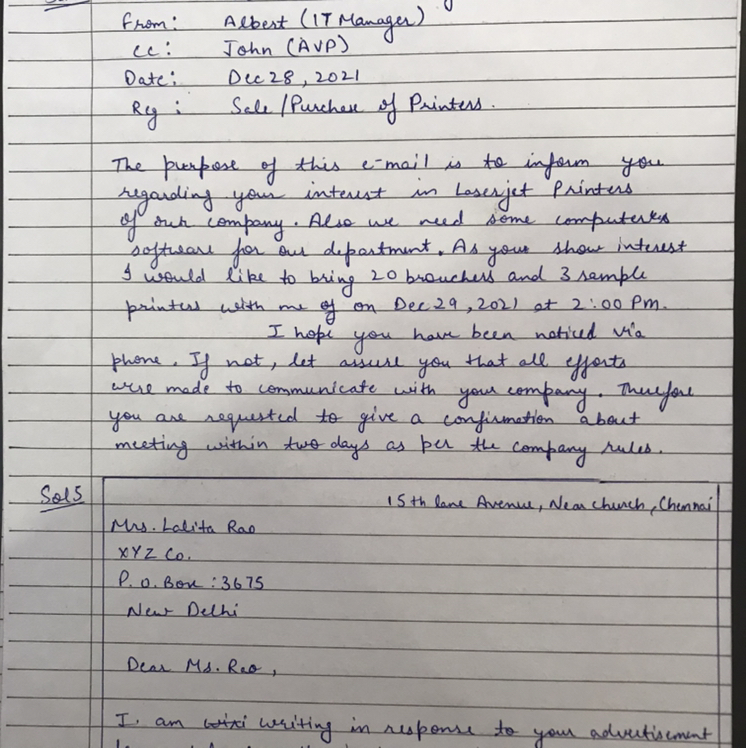 From: Albert (IT Manager)
cc: John (AVP)
Date: Dec 28, 2021
Reg: Sale/Purchase of Printers.
The purpose of this e-mail is to inform you
regarding your interest in Laserjet Printers
of our company. Also we need some computerks
software for our department. As your show interest
I would like to bring 20 brouchers and 3 sample
printers with me of on Dec 29, 2021 at 2:00 PM.
I hope you have been noticed via
phone. If not, let assure you that all efforts
were made to communicate with your company. Therefore
you are requested to give a confirmation about
meeting within two days as per the company rules.
Sol 5
15th lane Avenue, Near church, Chennai
Mrs. Lalita Rao
XYZ Co.
P.O. Box: 3675
New Delhi
Dear Ms. Rao,
I am writing in response to your advertisement